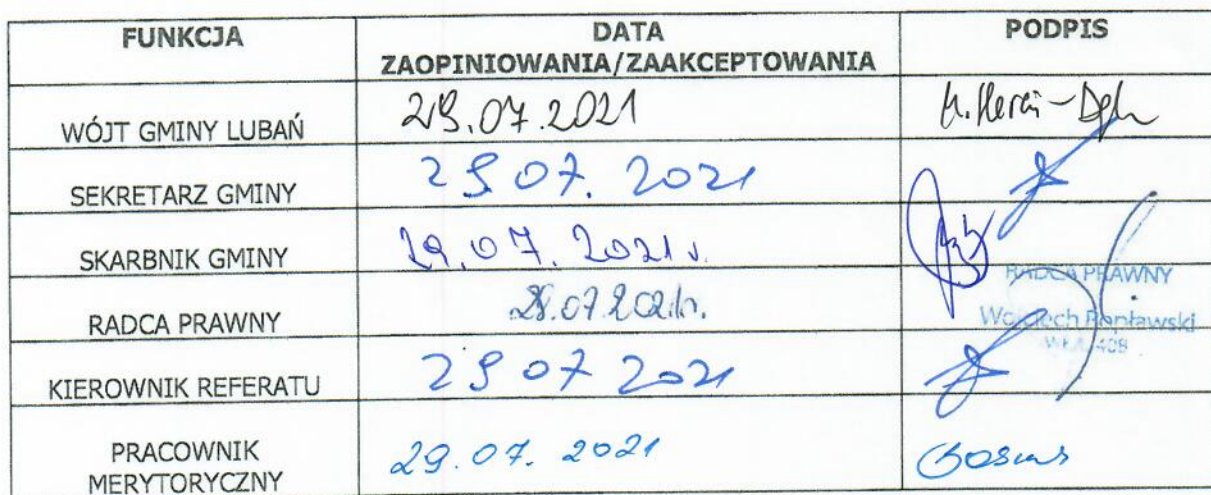 FUNKCJA
DATA
ZAOPINIOWANIA/ZAAKCEPTOWANIA
PODPIS
WÓJT GMINY LUBAŃ
29.07.2021
SEKRETARZ GMINY
29 07. 2021
SKARBNIK GMINY
29.07.2021 r.
RADCA PRAWNY
07.2021r.
RADCA PRAWNY
Wojciech Popławski
KIEROWNIK REFERATU
29 07 2021
PRACOWNIK
MERYTORYCZNY
29.07. 2021